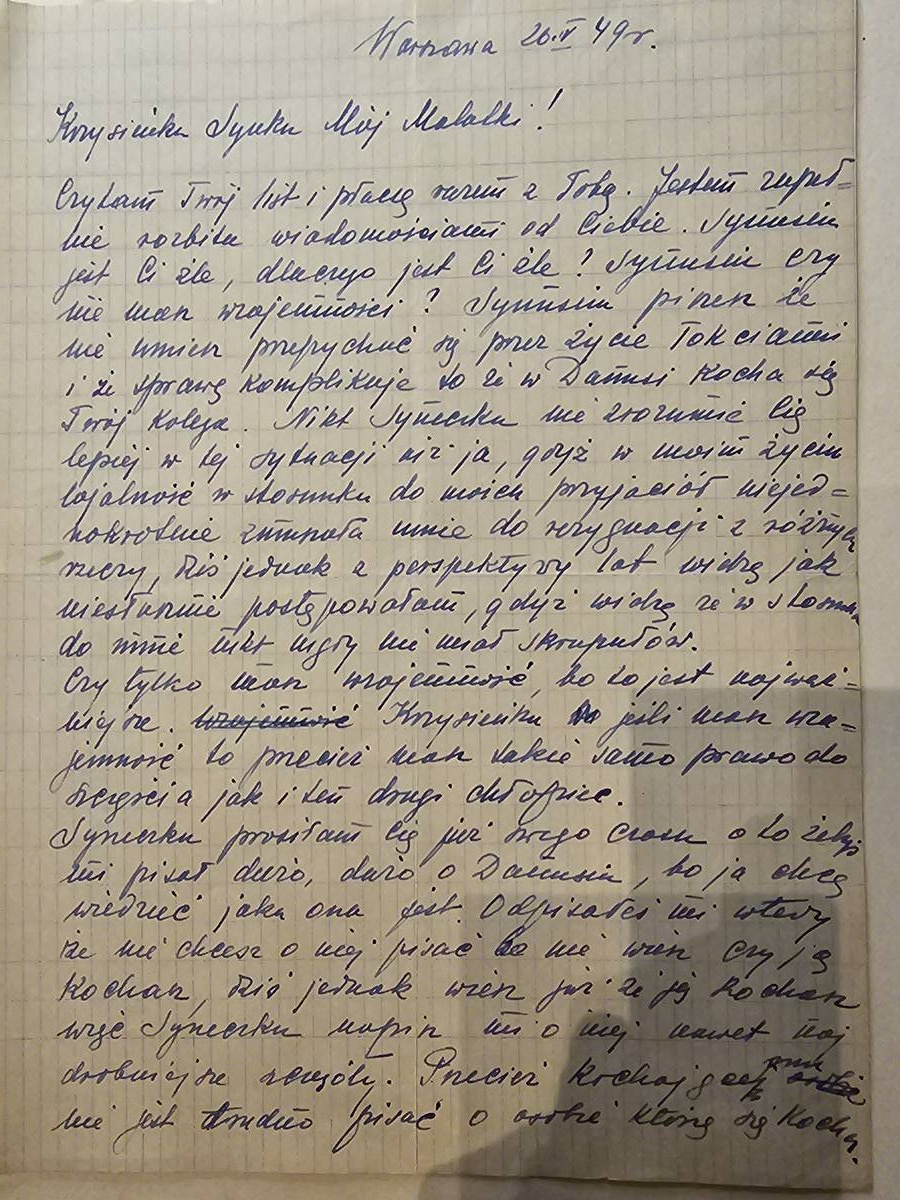 Warszawa 26.IV 49 r.
Krzysieńku Synku Mój Malutki!
Czytam Twój list i płaczę razem z Tobą. Jestem zupeł=
nie rozbita wiadomościami od Ciebie. Synusiu
jest Ci źle, dlaczego jest Ci źle? Synusiu czy
nie masz wzajemności? Synusiu piszesz że
nie umiesz przepychać się przez życie łokciami
i że sprawę komplikuje to że w Danusi kocha się
Twój kolega. Nikt Syneczku nie zrozumie Cię
lepiej w tej sytuacji niż ja, gdyż w moim życiu
lojalność w stosunku do moich przyjaciół niejed=
nokrotnie zmuszała mnie do rezygnacji z różnych
rzeczy, dziś jednak z perspektywy lat widzę jak
niesłusznie postępowałam, gdyż widzę że w stosunku
do mnie nikt nigdy nie miał skrupułów.
Czy tylko masz wzajemność, bo to jest najważ=
niejsze. Wzajemność Krzysieńku jeśli masz wza=
jemność to przecież masz takie samo prawo do
szczęścia jak i ten drugi chłopiec.
Syneczku prosiłam Cię już swego czasu o to żebyś
mi pisał dużo, dużo o Danusiu, bo ja chcę
wiedzieć jaka ona jest. Odpisałeś mi wtedy
że nie chcesz o niej pisać bo nie wiesz czy ją
kochasz, dziś jednak wiesz już że ją kochasz
więc Syneczku napisz mi o niej nawet naj
drobniejsze szczegóły. Przecież kochającej
nie jest trudno pisać o osobie którą się kocha.